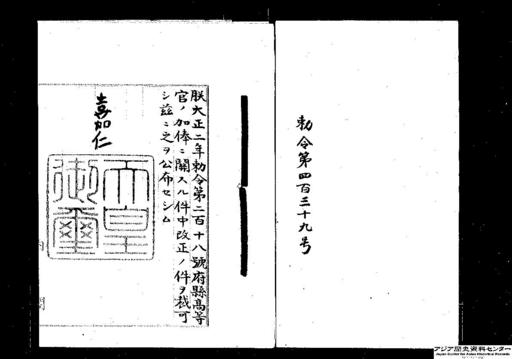 勅令第四百三十九号
朕大正二年勅令第二百十八號府縣高等
官ノ加俸ニ關スル件中改正ノ件ヲ裁可
シ茲ニ之ヲ公布セシム
嘉仁
天皇
御璽
アジア歴史資料センター
Japan Center for Asian Historical Records